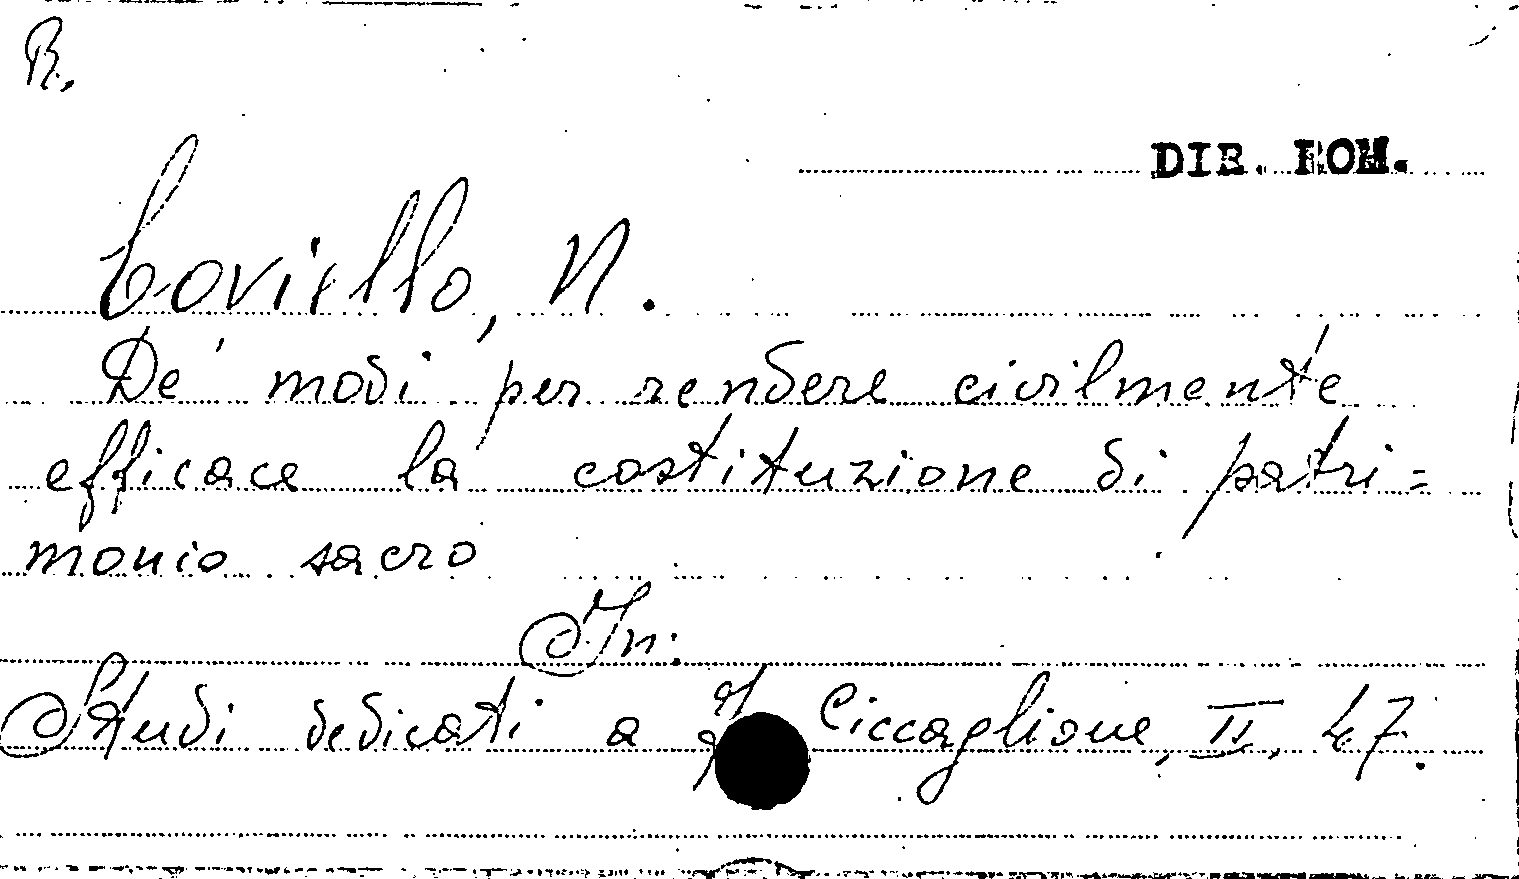 R.
DIR. ROM.
Coviello, N.
De' modi per rendere civilmente
efficace la costituzione di patri=
monio sacro
In:
Studi dedicati a Ciccaglione, II, 47.